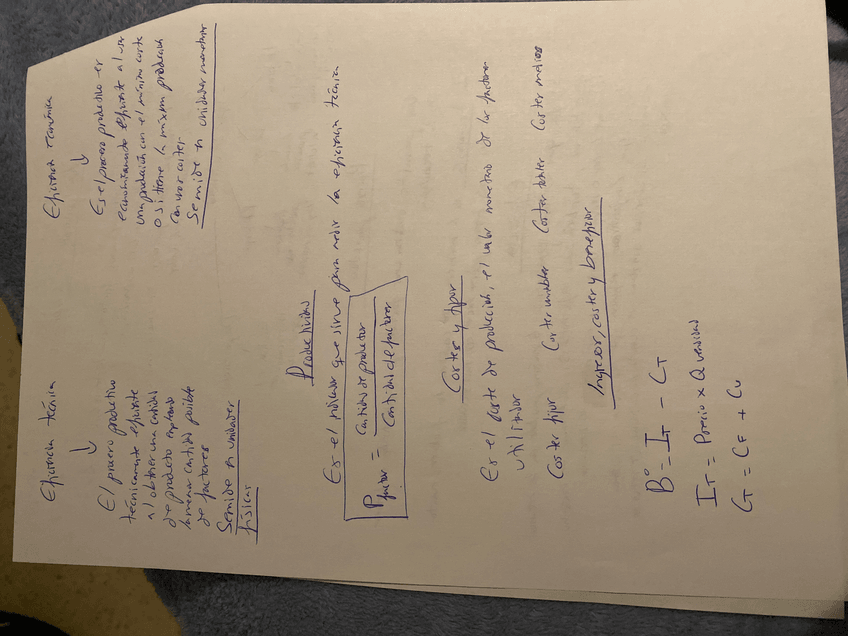 Eficiencia técnica
↓
El proceso productivo
técnicamente eficiente
al obtener una cantidad
de producto empleando
la menor cantidad posible
de factores
Semide en unidades
físicas
Eficiencia económica
↓
Es el proceso productivo es
económicamente eficiente al usar
una producción con el mínimo coste
o si tiene la máxima producción
con unos costes.
Semide en unidades monetarias
Productividad
Es el indicador que sirve para medir la eficiencia técnica
P factor = Cantidad de productos / Cantidad de factores
Costes y tipos
Es el coste de producción, el valor monetario de los factores
utilizados
Costes fijos Costes variables Costes totales Costes medios
Ingresos, costes y beneficios
Bº = IT - CT
IT = Precio x Q vendidas
CT = CF + CV